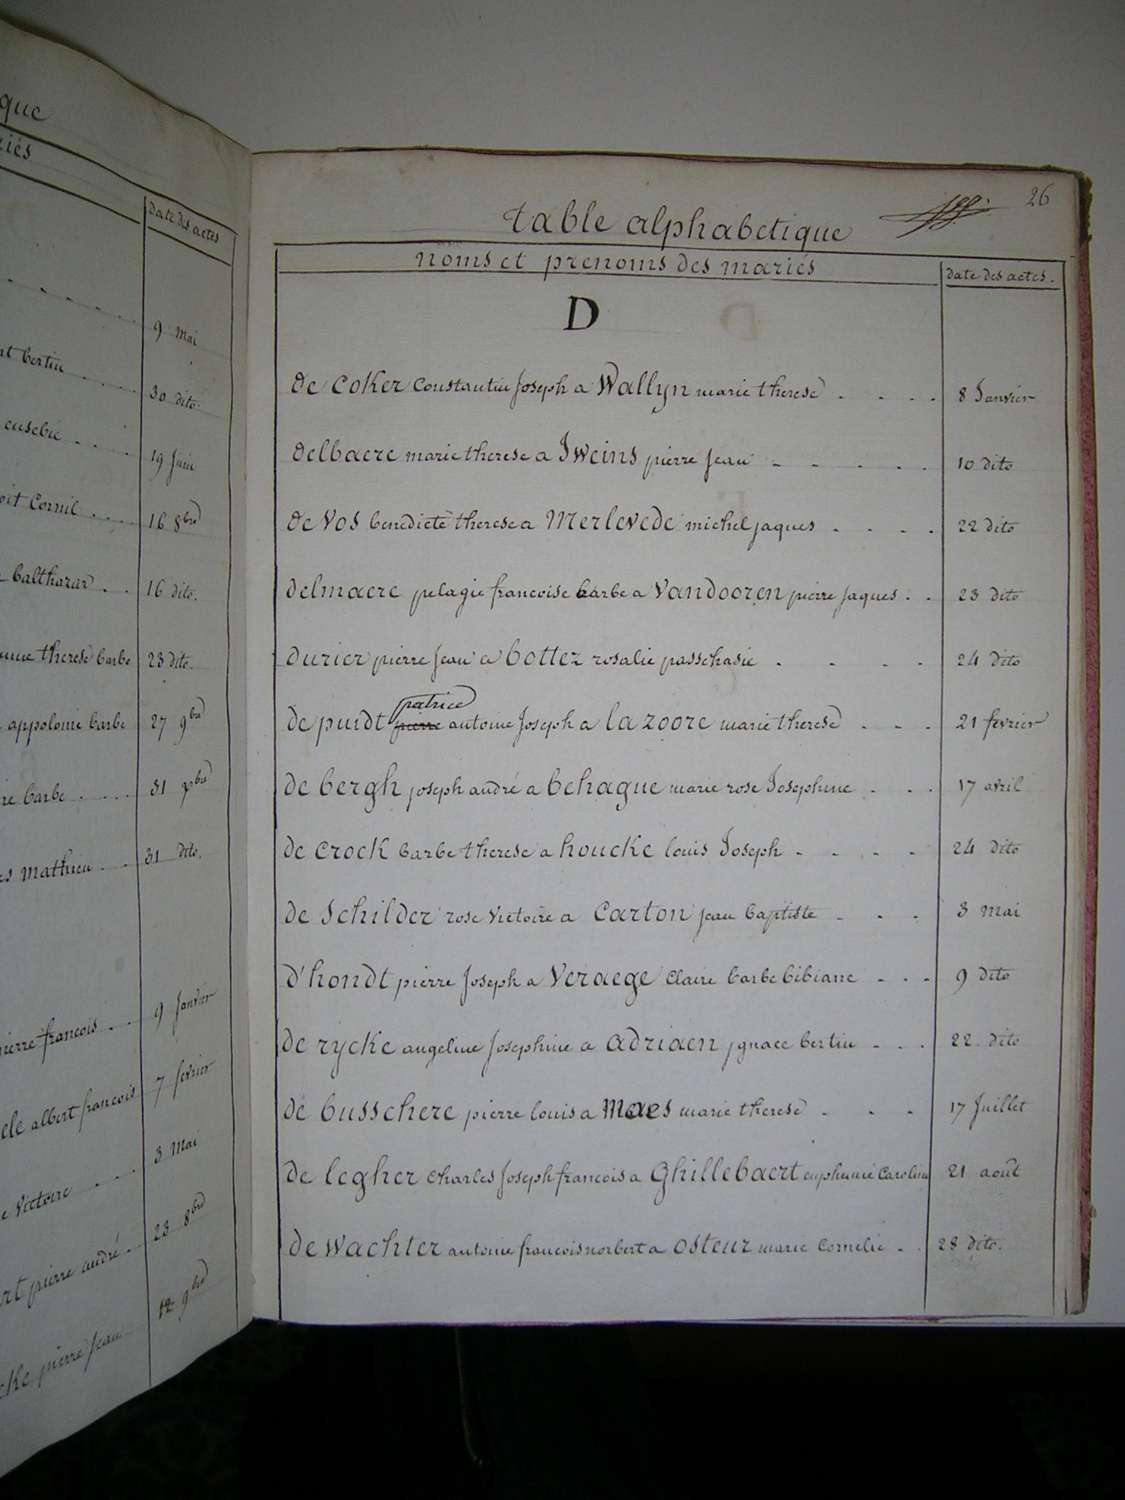 que
riés
Date des actes
9 Mai
bertin
30 dito.
eusebie
19 Juin
Cornil
16 8bre
balthazar
16 dito.
therese barbe
23 dito.
appolonie barbe
27 9bre
barbe
31 xbre
Mathieu
31 dito.
pierre francois
9 Janvier
albert francois
7 fevrier
Victoire
3 Mai
pierre andré
23 8bre
pierre Jean
12 9bre
26
table alphabetique
noms et prenoms des mariés
date des actes.
D
de Coker Constantin Joseph a Wallyn marie therese 8 Janvier
delbaere marie therese a Iweins pierre Jean 10 dito
de Vos benedicte therese a Merlevede michel jaques 22 dito
delmaere pelagie francoise barbe a Vandooren pierre Jaques 23 dito
durier pierre Jean a bottez rosalie passchasie 24 dito
patrice
de puidt pierre antoine Joseph a la zoore marie therese 21 fevrier
de bergh joseph andré a behague marie rose Josephine 17 avril
de crock barbe therese a houcke louis Joseph 24 dito
de Schilder rose Victoire a Carton jean baptiste 3 Mai
d'hondt pierre Joseph a Veraege Claire barbe bibiane 9 dito
de rycke angeline Josephine a adriaen ygnace bertin 22 dito
de busschere pierre louis a Maes marie therese 17 Juillet
de legher Charles Joseph francois a Ghillebaert euphemie Caroline 21 août
de Wachter antoine francois norbert a osteur marie Cornelie 28 dito.